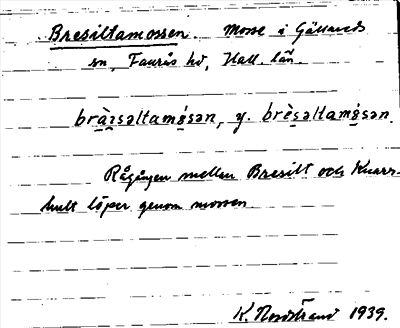 Bresiltamossen. Mosse i Gällareds
sn, Faurås hd, Hall. län.
brɛ̀ᶎsəltamɵ́sən, y. brèsəltamɵ́sən.
Rågången mellan Bresilt och Knarr-
hult löper genom mossen.
K. Nordstrand 1939.